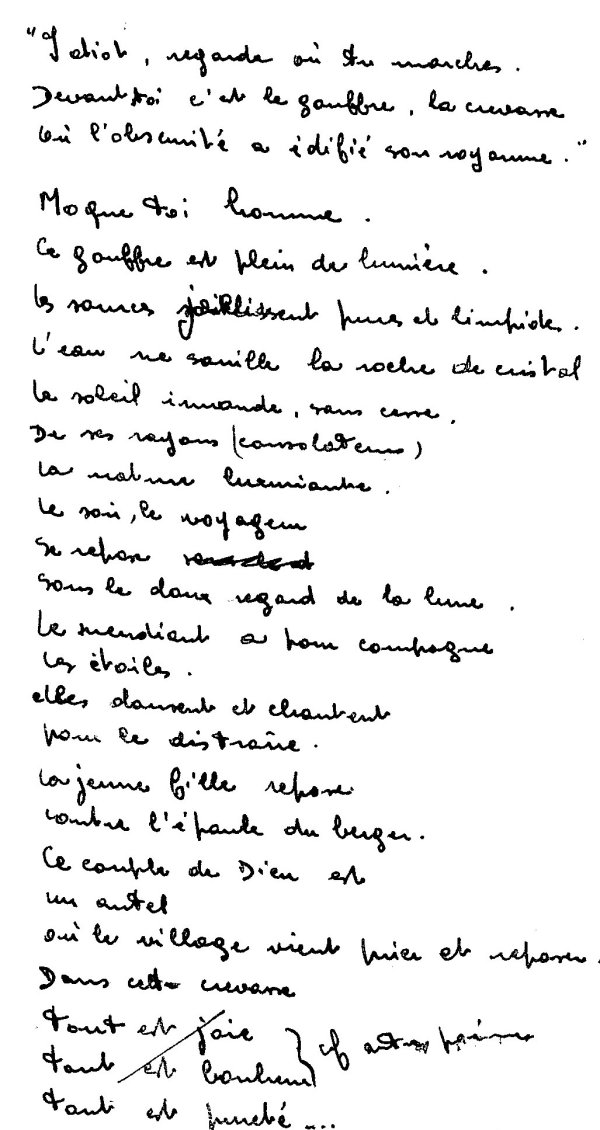 "Idiot, regarde où tu marches.
Devant toi c'est le gouffre, la crevasse
où l'obscurité a édifié son royaume."
Moque toi homme.
Ce gouffre est plein de lumière.
les sources jaillissent pures et limpides.
L'eau ne souille la roche de cristal
Le soleil innonde, sans cesse,
De ses rayons (consolateurs)
la nature luxuriante.
Le soir, le voyageur
se repose
sous le doux regard de la lune.
Le mendiant a pour compagne
les étoiles.
elles dansent et chantent
pour le distraire.
la jeune fille repose
contre l'épaule du berger.
Ce couple de Dieu est
un autel
où le village vient prier et reposer.
Dans cette crevasse
tout est joie
tout est bonheur } cf autre poème
tout est pureté ...